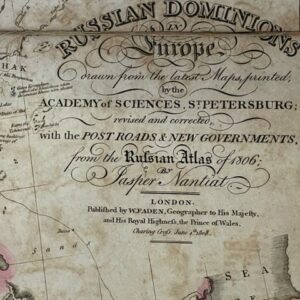 RUSSIAN DOMINIONS
IN
Europe
drawn from the latest Maps, printed,
by the
ACADEMY of SCIENCES, St. PETERSBURG;
revised and corrected,
with the POST ROADS & NEW GOVERNMENTS,
from the Russian Atlas of 1806;
BY
Jasper Nantiat.
LONDON.
Published by W. FADEN, Geographer to His Majesty,
and His Royal Highness, the Prince of Wales.
Charing Cross. June 4th. 1808.
HAK
Sands
SEA